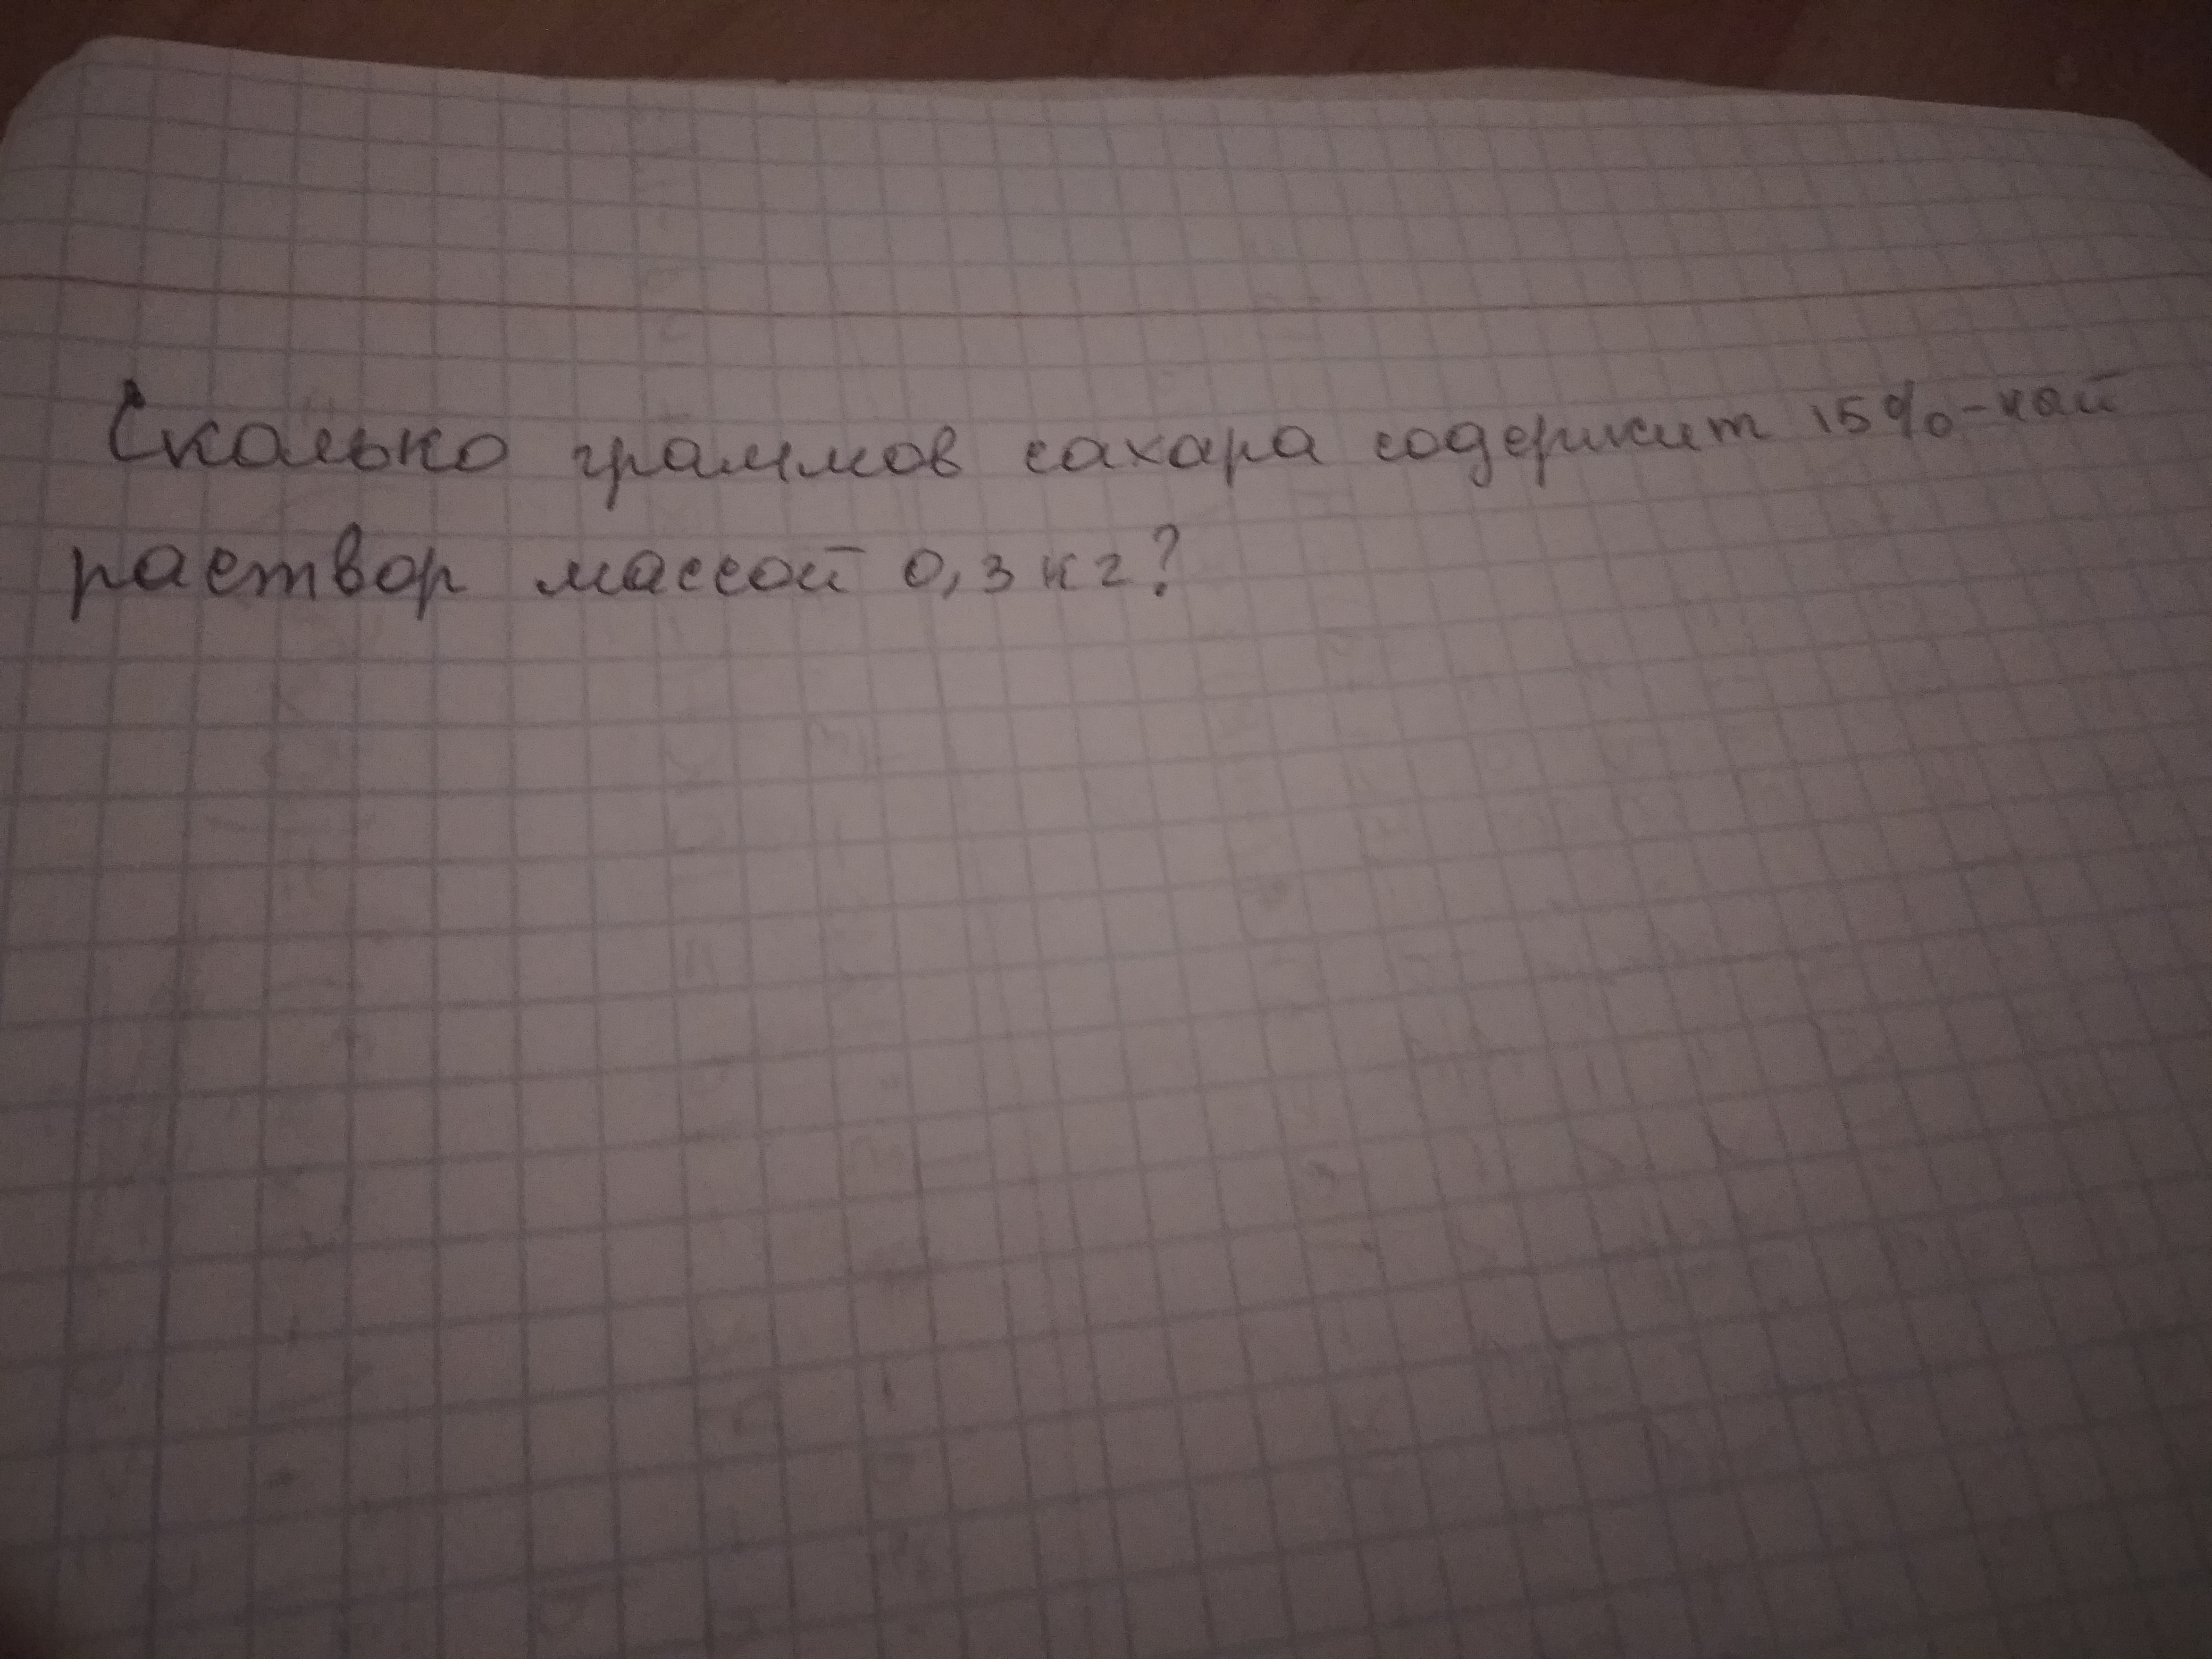 Сколько граммов сахара содержит 15%-ной
раствор массой 0,3 кг?